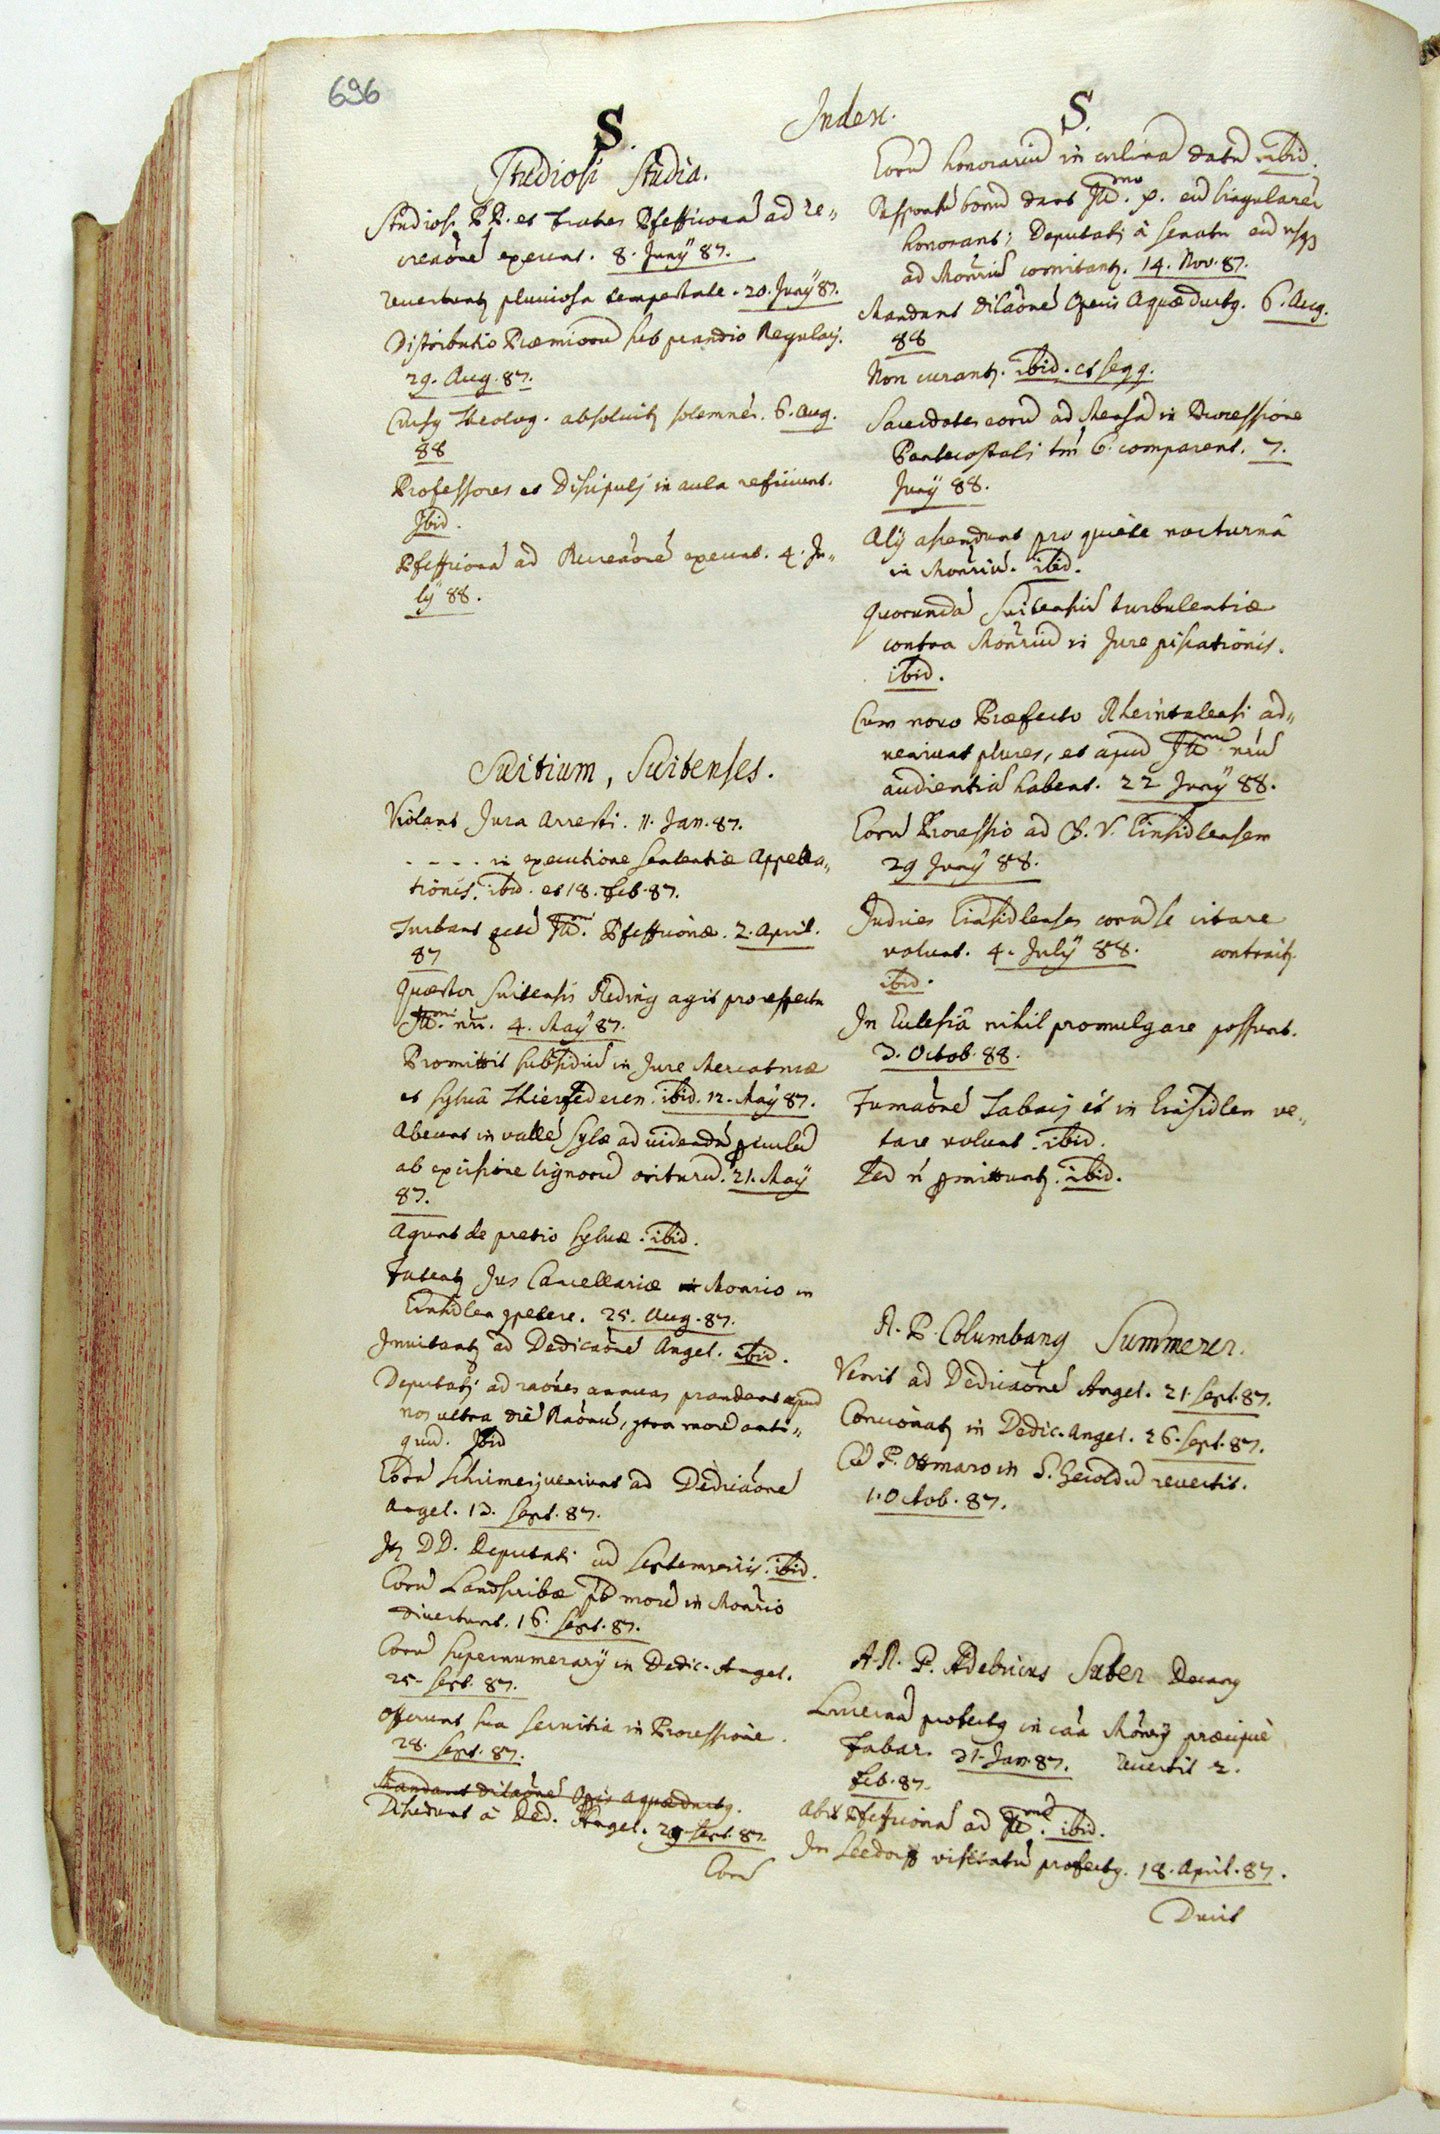 696
Index.
S.
Studiosi Studia.
Studiosi P P. et fratres Pfefficonā ad re„
creaōnē exeunt. 8. Junÿ 87.
revertuntʒ pluviosa tempestate. 20. Junÿ 87.
Distributio Præmiorū sub prandio Regulaꝫ.
29. Aug. 87.
Cursꝫ Theolog. absolvitʒ solemnēr. 6. Aug.
88
Professores et Discipulj in aula reficiunt.
Jbid.
Pfefficonā ad Recreaōnē exeunt. 4. Ju„
lÿ 88.
Suitium, Suitenses.
Violant Jura Arresti. 11. Jan. 87.
- - - - in executione sententiæ Appella„
tionis. ibid. et 18. feb. 87.
Turbant Rmī. Pfefficonæ. 2. April.
87
Quæstor Suitensis Reding agit pro effectu
Rmī. nrī. 4. Maÿ 87.
Promittit subsidiū in Jure Mercaturæ
et sylvâ Thierfederen. ibid. 12. Maÿ 87.
Abeunt in vallē Sylæ ad videndū periculū
ab excisione lignorū oriturū. 21. Maÿ
87.
Agunt de pretio sylvæ. ibid.
Fatentʒ Jus Cancellariæ Monrio in
Einsidlen ꝯpetere. 25. Aug. 87.
Invitantʒ ad Dedicaōnē Angel. ibid.
Deputatj ad raōnes annuas prandent apud
nos ultra diē Raōnū, ꝯtra morē anti„
quū. Jbid
Eorū veniunt ad Dedicaōnē
Angel. 13. Sept. 87.
Jtʒ DD. Deputati ad septemviris. ibid.
Eorū Landscribæ morē in Monrio
divertunt. 16. Sept. 87.
Eorū supernumerarÿ in Dedic. Angel.
25. Sept. 87.
Offerunt sua servitia in Processione.
28. Sept. 87.
Mandant dilaōnē Opis aquæductꝫ.
Discedunt â Ded. Angel. 29. Sept. 87.
Eorū
S.
Eorū honorariū in culina datū ibid.
Responsū bonū dant Rmō. P. eū singularēr
honorant; Deputatj â senatu eū usqꝫ
ad Monriū comitantʒ. 14. Nov. 87.
Mandant dilaōnē Operis Aquæductꝫ. 6. Aug.
88
Non curantʒ. ibid. et seqq.
Sacerdotes eorū ad Mensā in Processione
Pentecostali tm̄ 6. comparent. 7.
Junÿ 88.
Alÿ ascendunt pro quiete nocturnâ
in Monriū. ibid.
Quorundā Suitensiū turbulentiæ
contra Monriū in Jure piscationis.
ibid.
Cum novo Præfecto Rheintalensi ad„
veniunt plures, et apud Rmū nrū
audientiā habent. 22 Junÿ 88.
Eorū Processio ad B. V. Einsidlensem
29 Junÿ 88.
Judices Einsidlenses corā se citare
volunt. 4. Julÿ 88. contraitʒ
ibid.
In Ecclesiâ nihil promulgare possunt.
3. Octob. 88.
Fumaōnē Tabaci et in Einsidlen ve„
tare volunt. ibid.
Sed ñ ꝑmittuntʒ. ibid.
R. P. Columbanꝫ Summerer.
Venit ad Dedicaōnē Angel. 21. Sept. 87.
Concionatʒ in Dedic. Angel. 26. Sept. 87.
Cū P. Otmaro in S. Geroldū revertit.
1. Octob. 87.
A. R. P. Adelricus Suter Decanꝫ
Lucernā profectꝫ in caā Monrÿ præcipuè
Fabar. 31. Jan. 87. revertit 2.
feb. 87.
Abit Pfefficonā ad Rmū. ibid.
In Seedorf visitatū profectꝫ. 18. April. 87.
Ducit